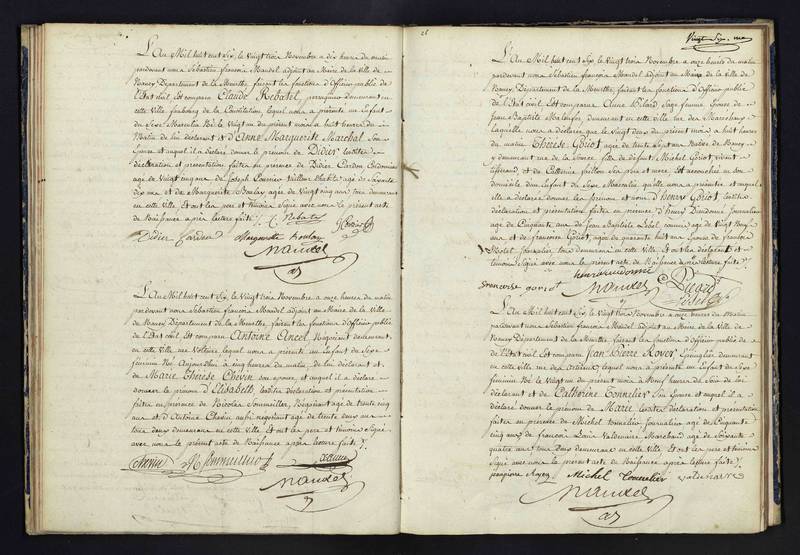 L'An Mil huit cent Six, le Vingt trois Novembre a dix heures du matin
pardevant nous Sébastien françois Mandel adjoint au Maire de la Ville de
Nancy Département de la Meurthe, faisant les fonctions d'Officier public de
l'Etat civil Est comparu Claude Rebatel, perruquier demeurant en
cette Ville faubourg de la Constitution, lequel nous a présenté un Enfant
du Sexe Masculin Né le Vingt un du présent mois a huit heures du
Matin de lui déclarant et d'Anne Marguerite Marchal Son
Epouse et auquel il a déclaré donner le prénom de Didier lesdites
déclaration et présentation faites en présence de Didier Cardon Cordonnier
agé de Vingt cinq ans de Joseph Tailleur d'habits agé de Soixante
dix ans et de Marguerite Boulay agée de Vingt cinq ans tous demeurant
en cette Ville Et ont les père et témoins Signé avec nous le présent acte
de Naissance après lecture faite
C. Rebatel
Didier Cardon Margueritte boulay
Mandel
L'An Mil huit cent Six, le Vingt trois Novembre a onze heures du matin
pardevant nous Sébastien françois Mandel adjoint au Maire de la Ville
de Nancy Département de la Meurthe, faisant les fonctions d'Officier public
de l'Etat civil Est comparu Antoine Ancel Négociant demeurant
en cette Ville rue Voltaire lequel nous a présenté un Enfant du Sexe
féminin Né Aujourd'hui a cinq heures du matin de lui déclarant et
de Marie Thérèse Chevin Son epouse, et auquel il a déclaré
donner le prénom d'Elisabeth lesdites déclaration et présentation
faites en présence de Nicolas Négociant agé de trente cinq
ans et d'Antoine Chevin aussi négociant agé de trente deux ans
tous deux demeurant en cette Ville Et ont les père et témoins Signé
avec nous le présent acte de Naissance après lecture faite
Chevin
Mandel
26
Vingt Six
L'An Mil huit cent Six, le Vingt trois Novembre a onze heures du matin
pardevant nous Sébastien françois Mandel adjoint au Maire de la Ville de
Nancy Département de la Meurthe, faisant les fonctions d'Officier public
de l'Etat civil, Est comparue Anne Sage femme Epouse de
Jean Baptiste demeurant en cette Ville rue des Maréchaux
Laquelle nous a déclaré que le Vingt deux du présent mois a huit heures
du matin Thérèse Goriot agée de trente Sept ans Native de Nancy
y demeurant rue de la Source fille de défunt Michel Goriot, vivant
et de Catherine Ses père et mère, Est accouchée en Son
domicile d'un Enfant du Sexe Masculin qu'elle nous a présenté et auquel
elle a déclaré donner les prénom et nom d'henry Goriot lesdites
déclaration et présentation faites en présence d'henry Dieudonné Journalier
agé de Cinquante ans de Jean Baptiste Lebel commis agé de Vingt Neuf
ans et de françoise Goriot, agée de quarante huit ans
Journalier tous demeurant en cette Ville Et ont les déclarante et
témoins Signé avec nous le présent acte de Naissance après lecture faite
henri dieudonné
francoise goriot Mandel
L'An Mil huit cent Six, le Vingt trois Novembre a onze heures du Matin
pardevant nous Sébastien françois Mandel adjoint au Maire de la Ville de
Nancy, Département de la Meurthe, faisant les fonctions d'Officier public de
l'Etat civil Est comparu Jean Pierre Royer, Epinglier demeurant
en cette Ville rue des Artisans, lequel nous a présenté un Enfant du Sexe
féminin Né le Vingt un du présent mois a Neuf heures du Soir de lui
déclarant et de Catherine Tonnelier Son Epouse et auquel il a
déclaré donner le prénom de Marie lesdites déclaration et présentation
faites en présence de Michel tonnelier Journalier agé de Cinquante
cinq ans de françois Louis Valdenaire Marchand agé de Soixante
quatre ans tous deux demeurant en cette Ville. Et ont les père et témoins
Signé avec nous le présent acte de Naissance après lecture faite
Jeanpierre Royer Michel Tonnelier valdenaire
Mandel